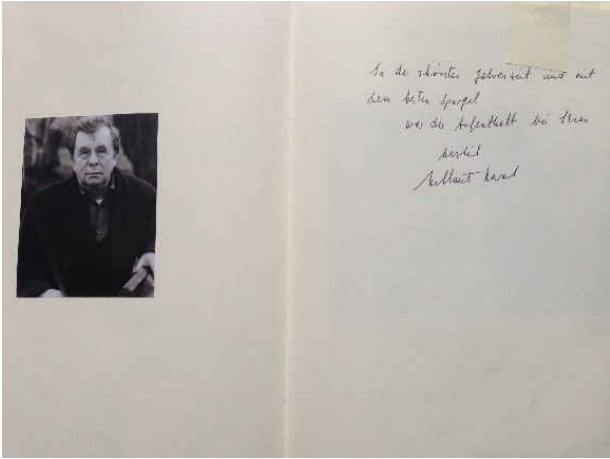 In der schönsten Jahreszeit und mit
dem besten Spargel
war der Aufenthalt bei Ihnen
herzlich